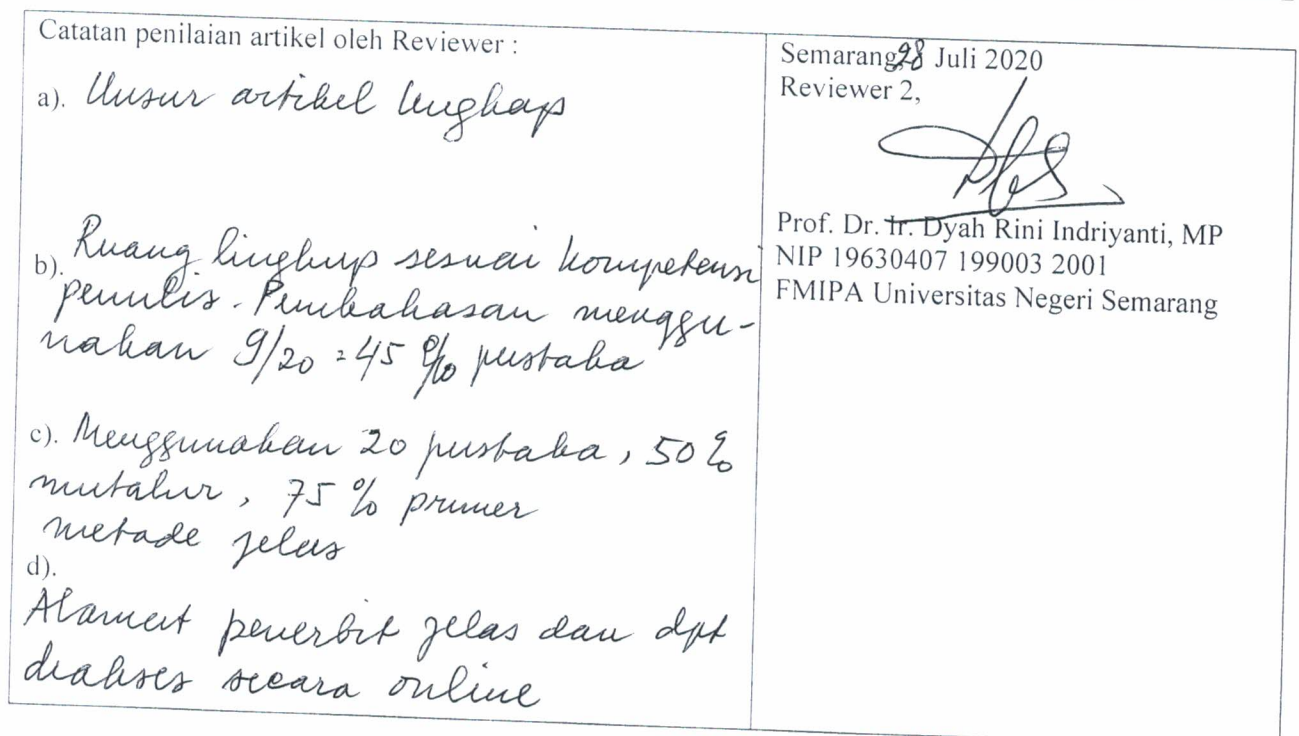 Catatan penilaian artikel oleh Reviewer :
a). Unsur artikel lengkap
b). Ruang lingkup sesuai kompetensi
penulis. Pembahasan menggu-
nakan 9/20 = 45 % pustaka
c). Menggunakan 20 pustaka, 50 %
mutahir, 75 % primer
metode jelas
d).
Alamat penerbit jelas dan dpt
diakses secara online
Semarang, 28 Juli 2020
Reviewer 2,
Prof. Dr. Ir. Dyah Rini Indriyanti, MP
NIP 19630407 199003 2001
FMIPA Universitas Negeri Semarang